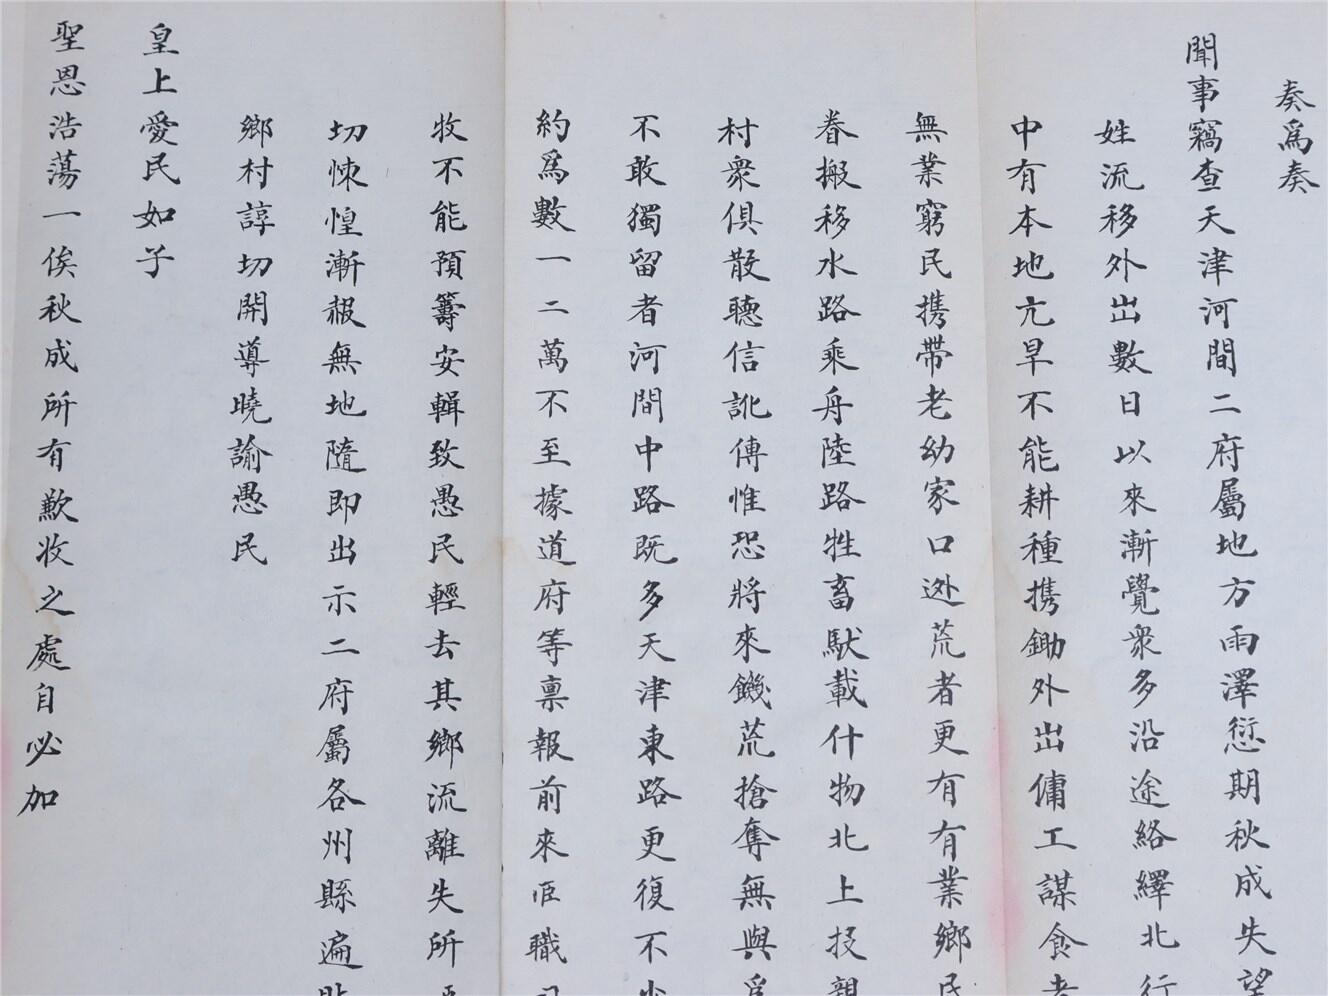 奏爲奏
聞事竊查天津河間二府屬地方雨澤愆期秋成失望
姓流移外出數日以來漸覺衆多沿途絡繹北行
中有本地亢旱不能耕種携鋤外出傭工謀食者
無業窮民携帶老幼家口逃荒者更有有業鄉民
眷搬移水路乘舟陸路牲畜馱載什物北上投親
村衆俱散聽信訛傳惟恐將來饑荒搶奪無與爲
不敢獨留者河間中路既多天津東路更復不少
約爲數一二萬不至據道府等禀報前來臣職司
牧不能預籌安輯致愚民輕去其鄉流離失所
切悚惶漸赧無地隨即出示二府屬各州縣遍貼
鄉村諄切開導曉諭愚民
皇上愛民如子
聖恩浩蕩一俟秋成所有歉收之處自必加